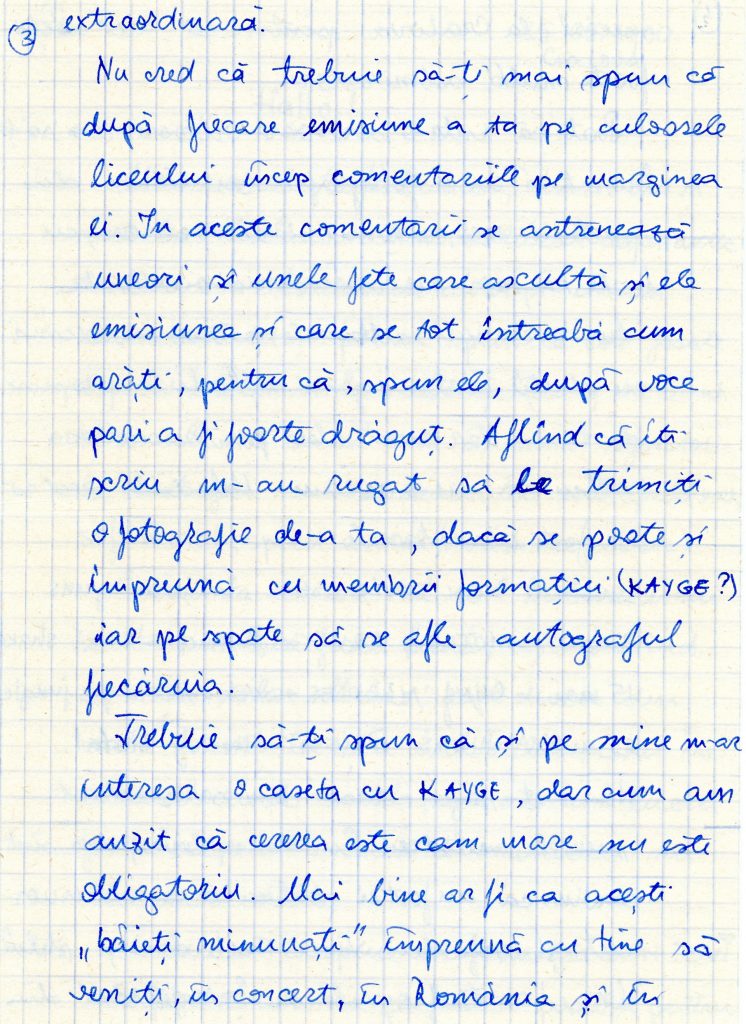 ③ extraordinară.
Nu cred că trebuie să-ți mai spun că
după fiecare emisiune a ta pe culoarele
liceului încep comentariile pe marginea
ei. In aceste comentarii se antrenează
uneori și unele fete care ascultă și ele
emisiunea și care se tot întreabă cum
arăți, pentru că, spun ele, după voce
pari a fi foarte drăguț. Aflînd că îți
scriu m-au rugat să le trimiți
o fotografie de-a ta, dacă se poate și
împreună cu membrii formației (KAYGE?)
iar pe spate să se afle autograful
fiecăruia.
Trebuie să-ți spun că și pe mine m-ar
interesa o caseta cu KAYGE, dar cum am
auzit că cererea este cam mare nu este
obligatoriu. Mai bine ar fi ca acești
„băieți minunați" împreună cu tine să
veniți, în concert, în România și în